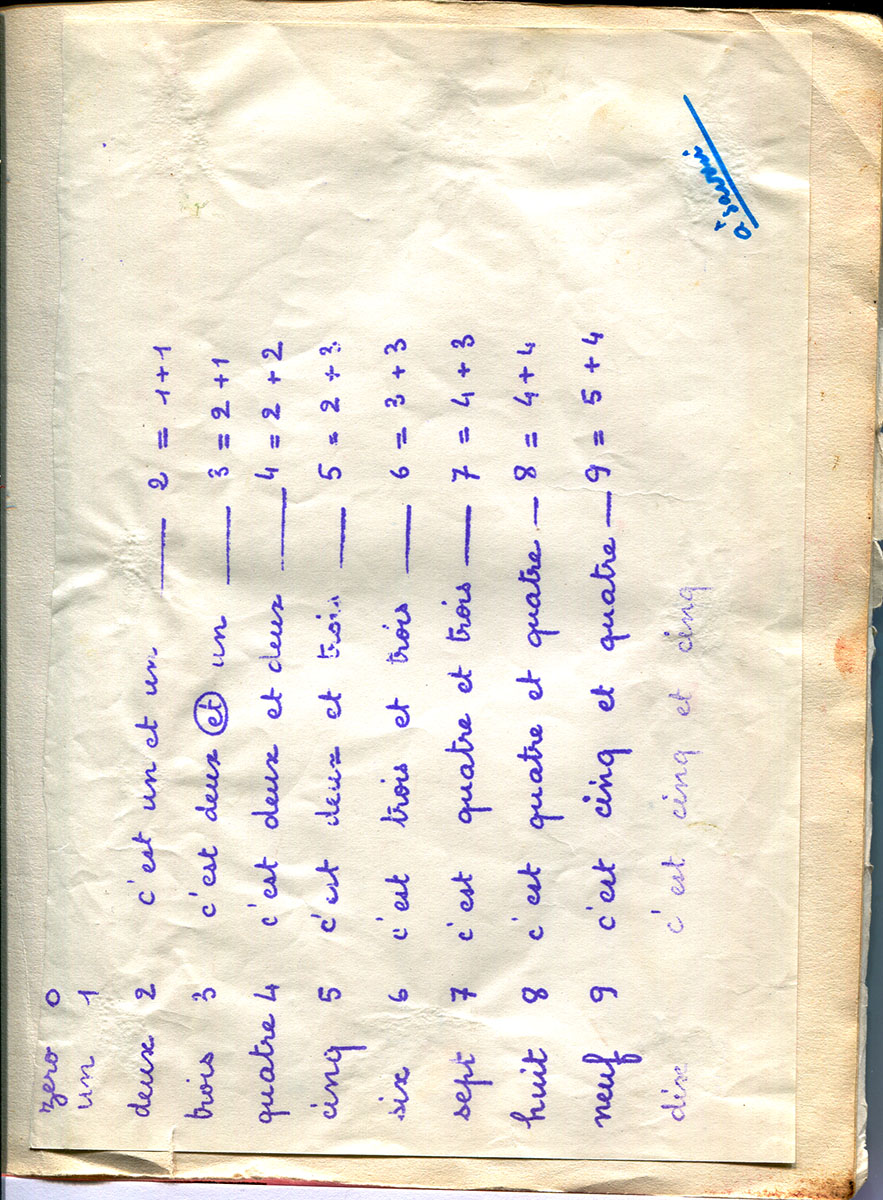 zero 0
un 1
deux 2 c'est un et un —— 2 = 1+1
trois 3 c'est deux et un —— 3 = 2+1
quatre 4 c'est deux et deux —— 4 = 2 + 2
cinq 5 c'est deux et trois —— 5 = 2 + 3
six 6 c'est trois et trois —— 6 = 3 + 3
sept 7 c'est quatre et trois —— 7 = 4 + 3
huit 8 c'est quatre et quatre — 8 = 4+4
neuf 9 c'est cinq et quatre — 9 = 5+4
dix c'est cinq et cinq
à savoir